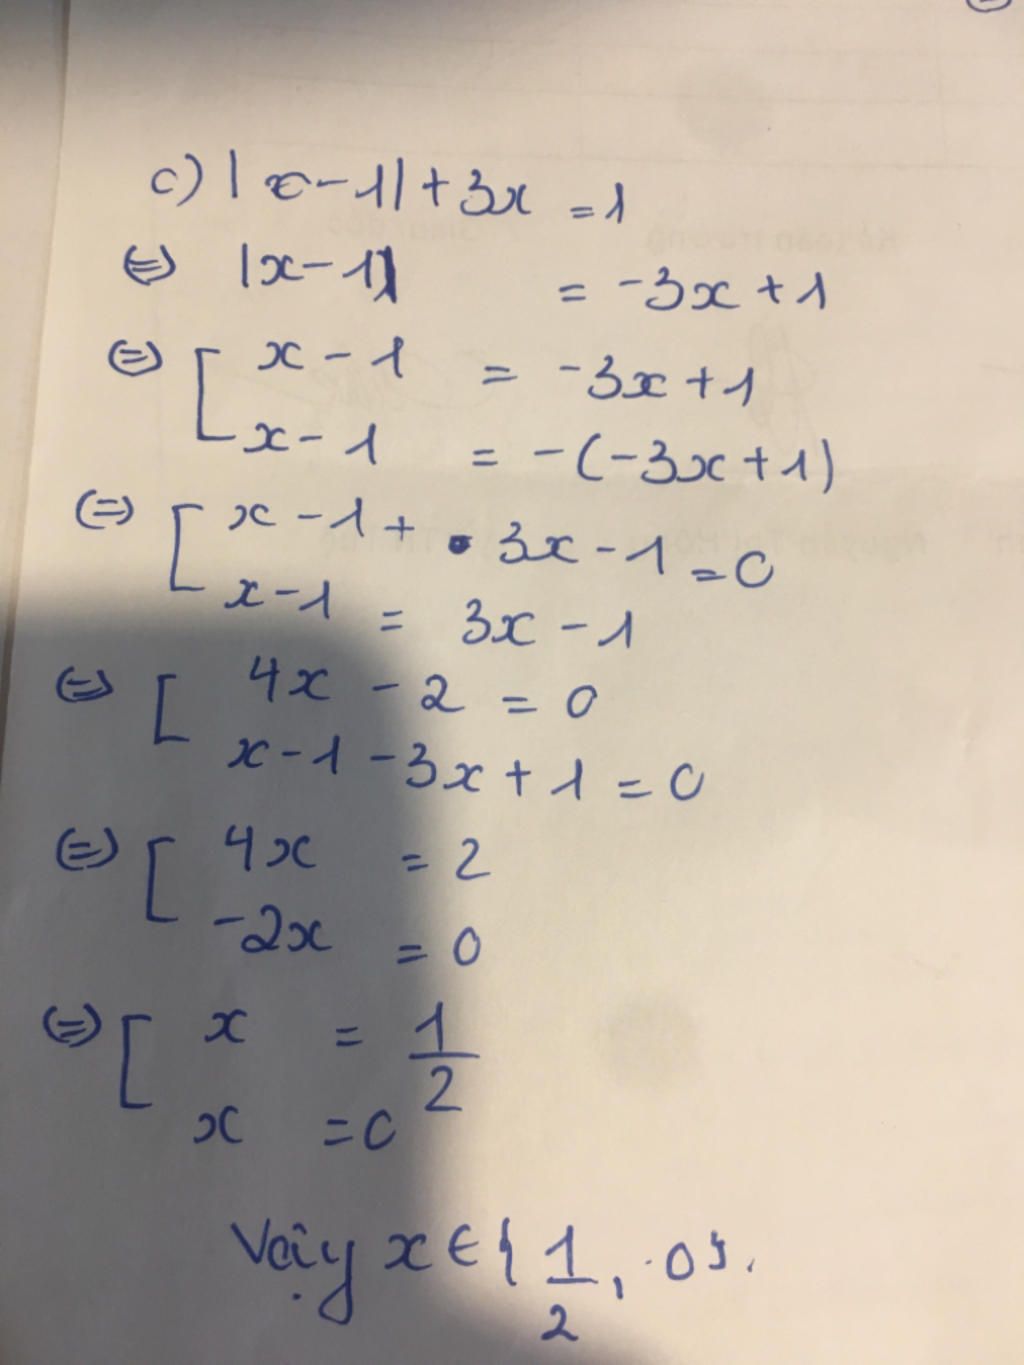 c) |x-1| + 3x = 1
(=) |x-1| = -3x + 1
(=) [ x - 1 = -3x + 1
x - 1 = -(-3x + 1)
(=) [ x - 1 + 3x - 1 = 0
x - 1 = 3x - 1
(=) [ 4x - 2 = 0
x - 1 - 3x + 1 = 0
(=) [ 4x = 2
-2x = 0
(=) [ x = 1/2
x = 0
Vậy x ∈ { 1/2, 0 }.